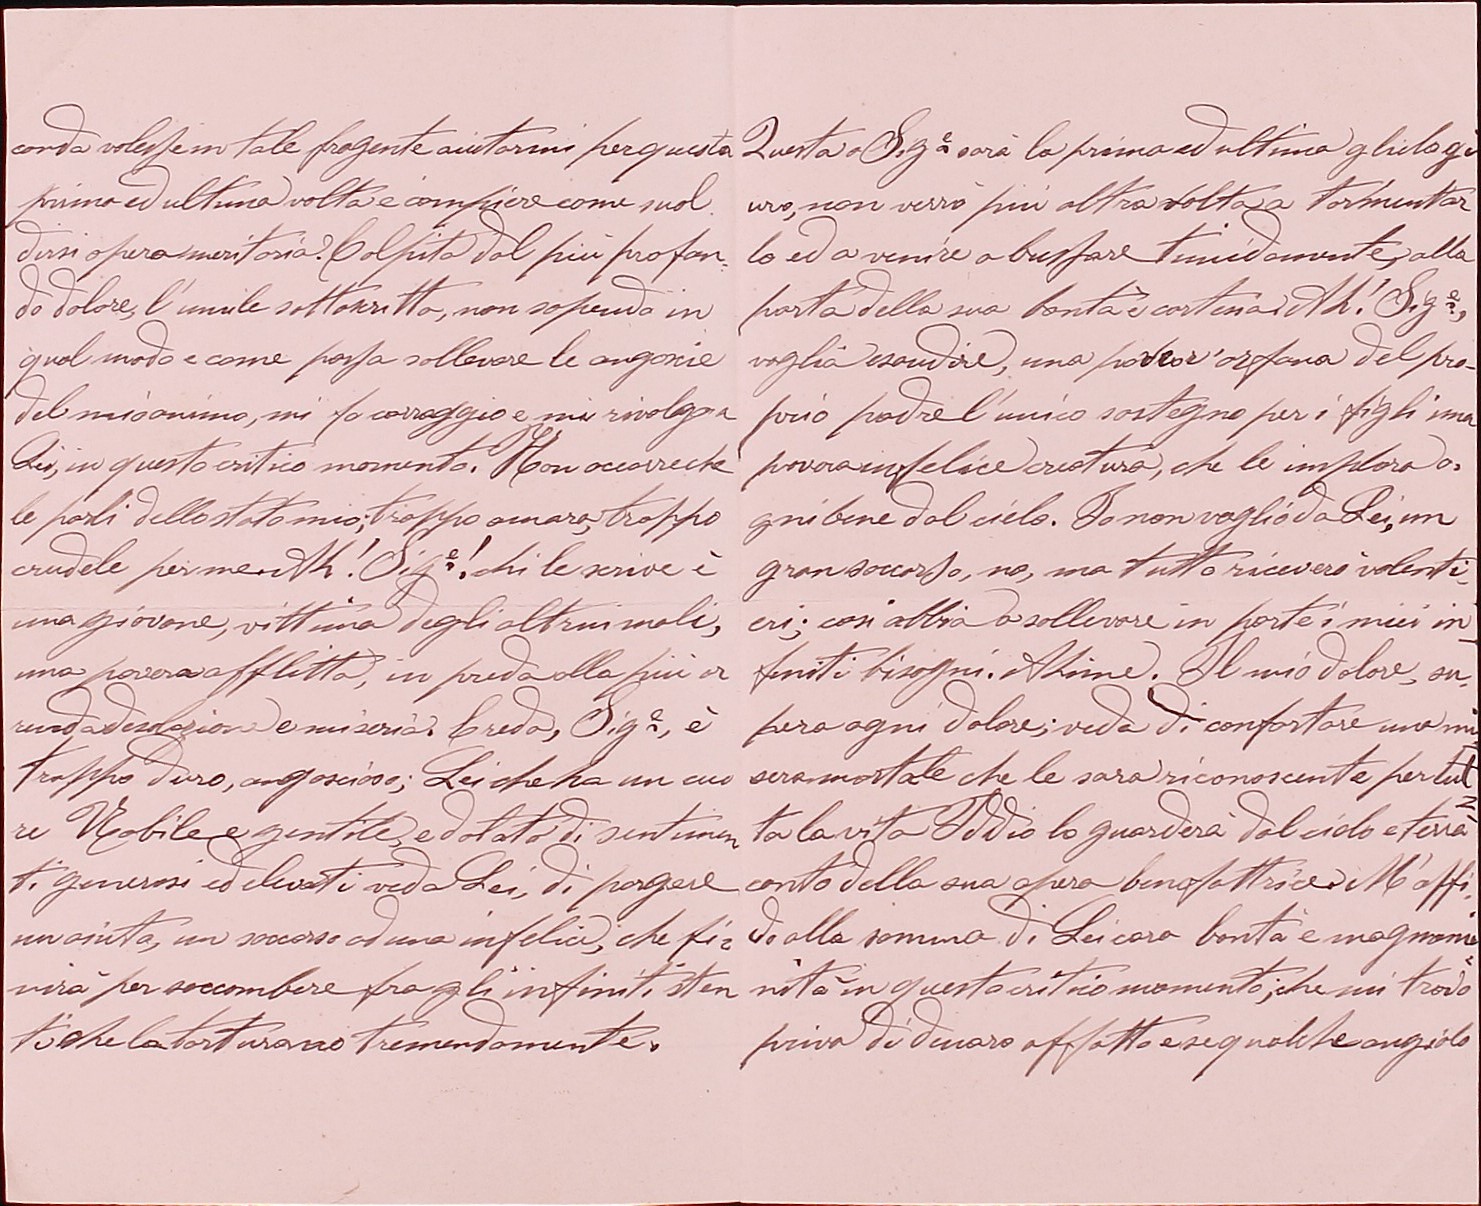 conda volesse in tale fragente aiutarmi per questa
prima ed ultima volta e compiere come suol
dirsi opera meritoria? Colpita dal più profon-
do dolore, l'umile sottoscritta, non sapendo in
qual modo e come possa sollevare le angoscie
del mio animo, mi fo corraggio e mi rivolgo a
Lei, in questo critico momento. Non occorre che
le parli dello stato mio; troppo amaro, troppo
crudele per me. Ah! Sigre! chi le scrive è
una giovane, vittima degli altrui mali,
una povera afflitta, in preda alla più or
renda desolazione e miseria. Creda, Sigre, è
troppo duro, angoscioso; Lei che ha un cuo
re Nobile e gentile, e dotato di sentimen
ti generosi ed elevati veda Lei, di porgere
un aiuto, un soccorso ad una infelice, che fi=
nirà per soccombere fra gli infiniti sten
ti che la torturano tremendamente.
Questa o Sigre sarà la prima ed ultima glielo gi
uro, non verrò più altra volta a tormentar
lo ed a venire a bussare timidamente, alla
porta della sua bontà e cortesia. Ah! Sigre,
voglia esaudire, una povera orfana del pro-
prio padre l'unico sostegno per i figli una
povera infelice creatura, che le implora o-
gni bene dal cielo. Io non voglio da Lei, un
gran soccorso, no, ma tutto riceverò volenti-
eri; così abbia a sollevare in parte i miei in-
finiti bisogni. Ahime. Il mio dolore, su-
pera ogni dolore; veda di confortare una mi-
sera mortale che le sara riconoscente per tut
ta la vita Iddio lo guarderà dal cielo e terrà
conto della sua opera benefattrice. M'affi-
do alla somma di Lei cara bontà e magnani
mità in questo critico momento, che mi trovo
priva di denaro affatto e se qualche angiolo